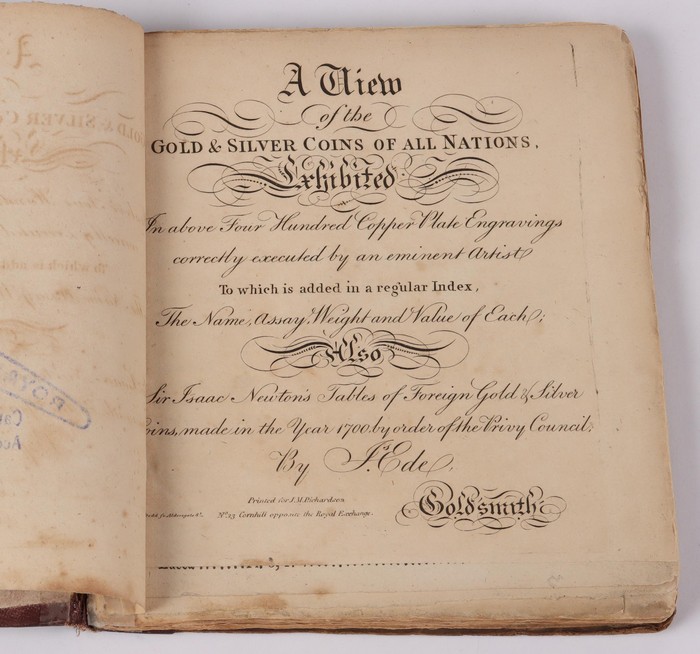 A View
of the
GOLD & SILVER COINS OF ALL NATIONS,
Exhibited
In above Four Hundred Copper Plate Engravings
correctly executed by an eminent Artist
To which is added in a regular Index,
The Name, Assay, Weight and Value of Each;
Also
Sir Isaac Newton's Tables of Foreign Gold & Silver
Coins, made in the Year 1700. by order of the Privy Council;
By Js. Ede,
Goldsmith
Printed for J.M. Richardson
No. 23 Cornhill opposite the Royal Exchange.